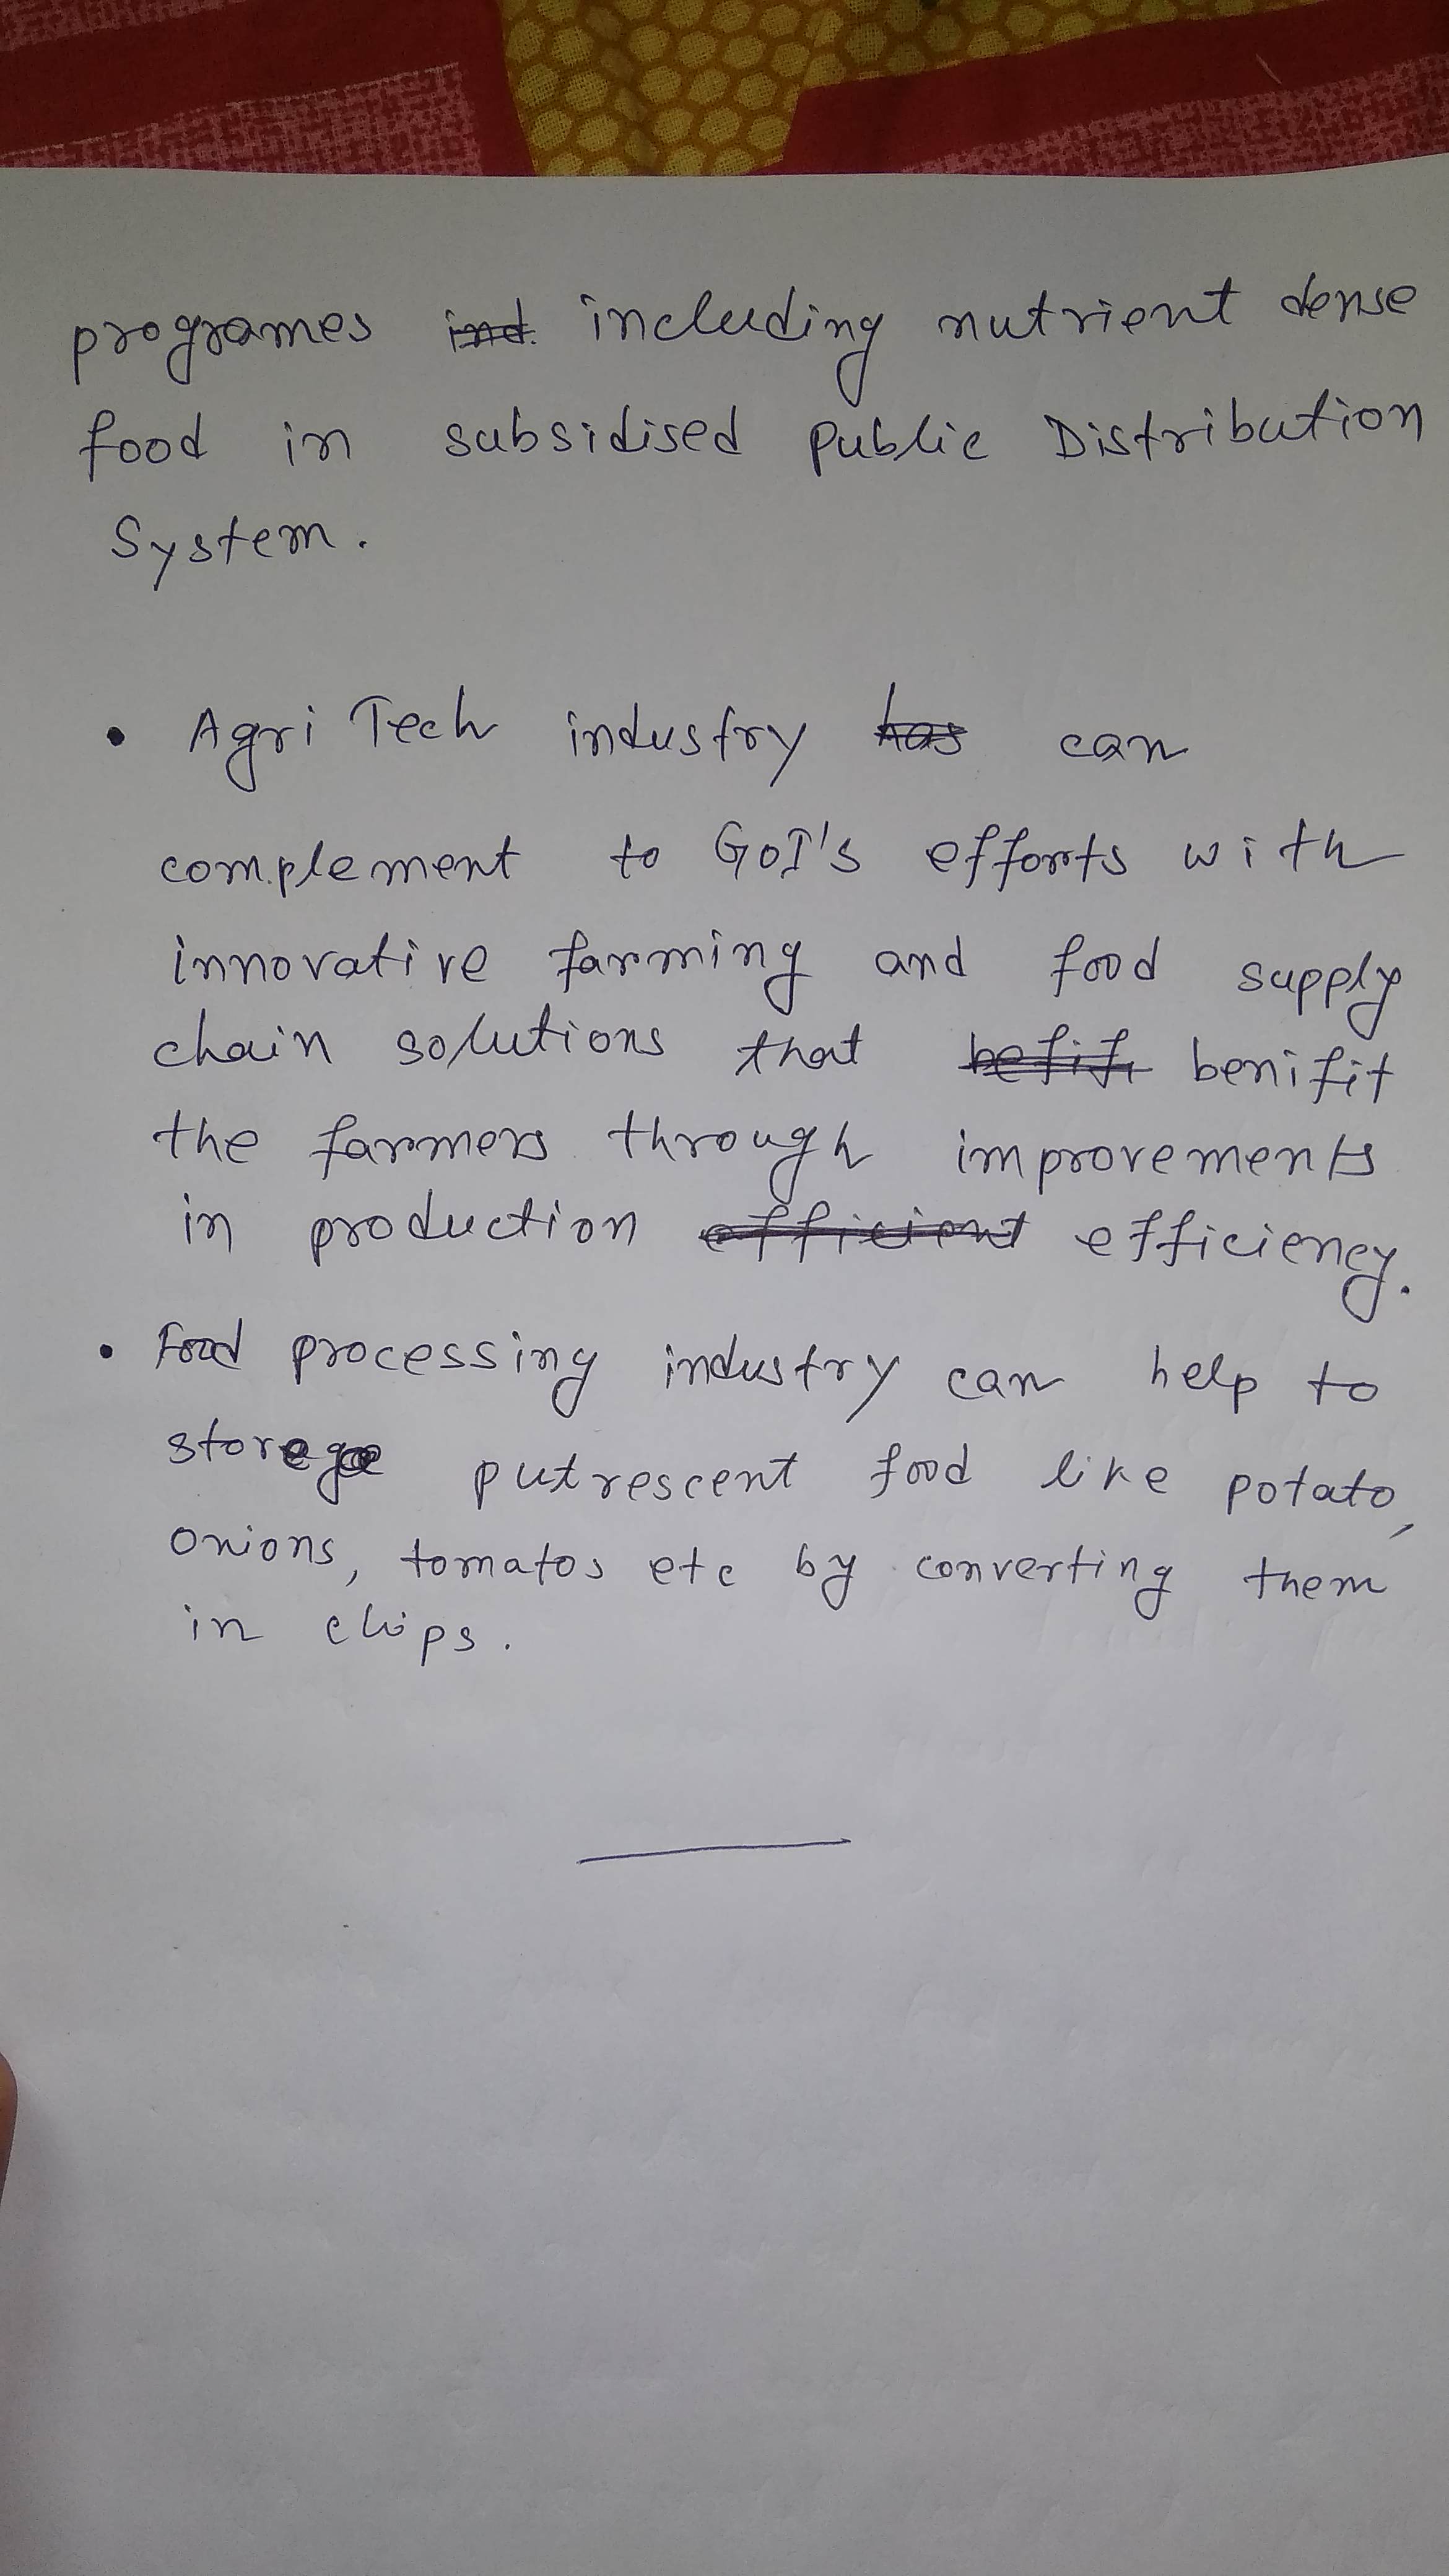 programes ind including nutrient dense
food in subsidised Public Distribution
System.
• Agri Tech industry has can
complement to GoI's efforts with
innovative farming and food supply
chain solutions that befit benifit
the farmers through improvements
in production efficient efficiency.
• Food processing industry can help to
store putrescent food like potato,
onions, tomatos etc by converting them
in chips.